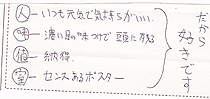 人―いつも元気で気持ちがいい.
味―濃い目の味つけで頭に残る
値―納得.
室―センスあるポスター
だから
好きです